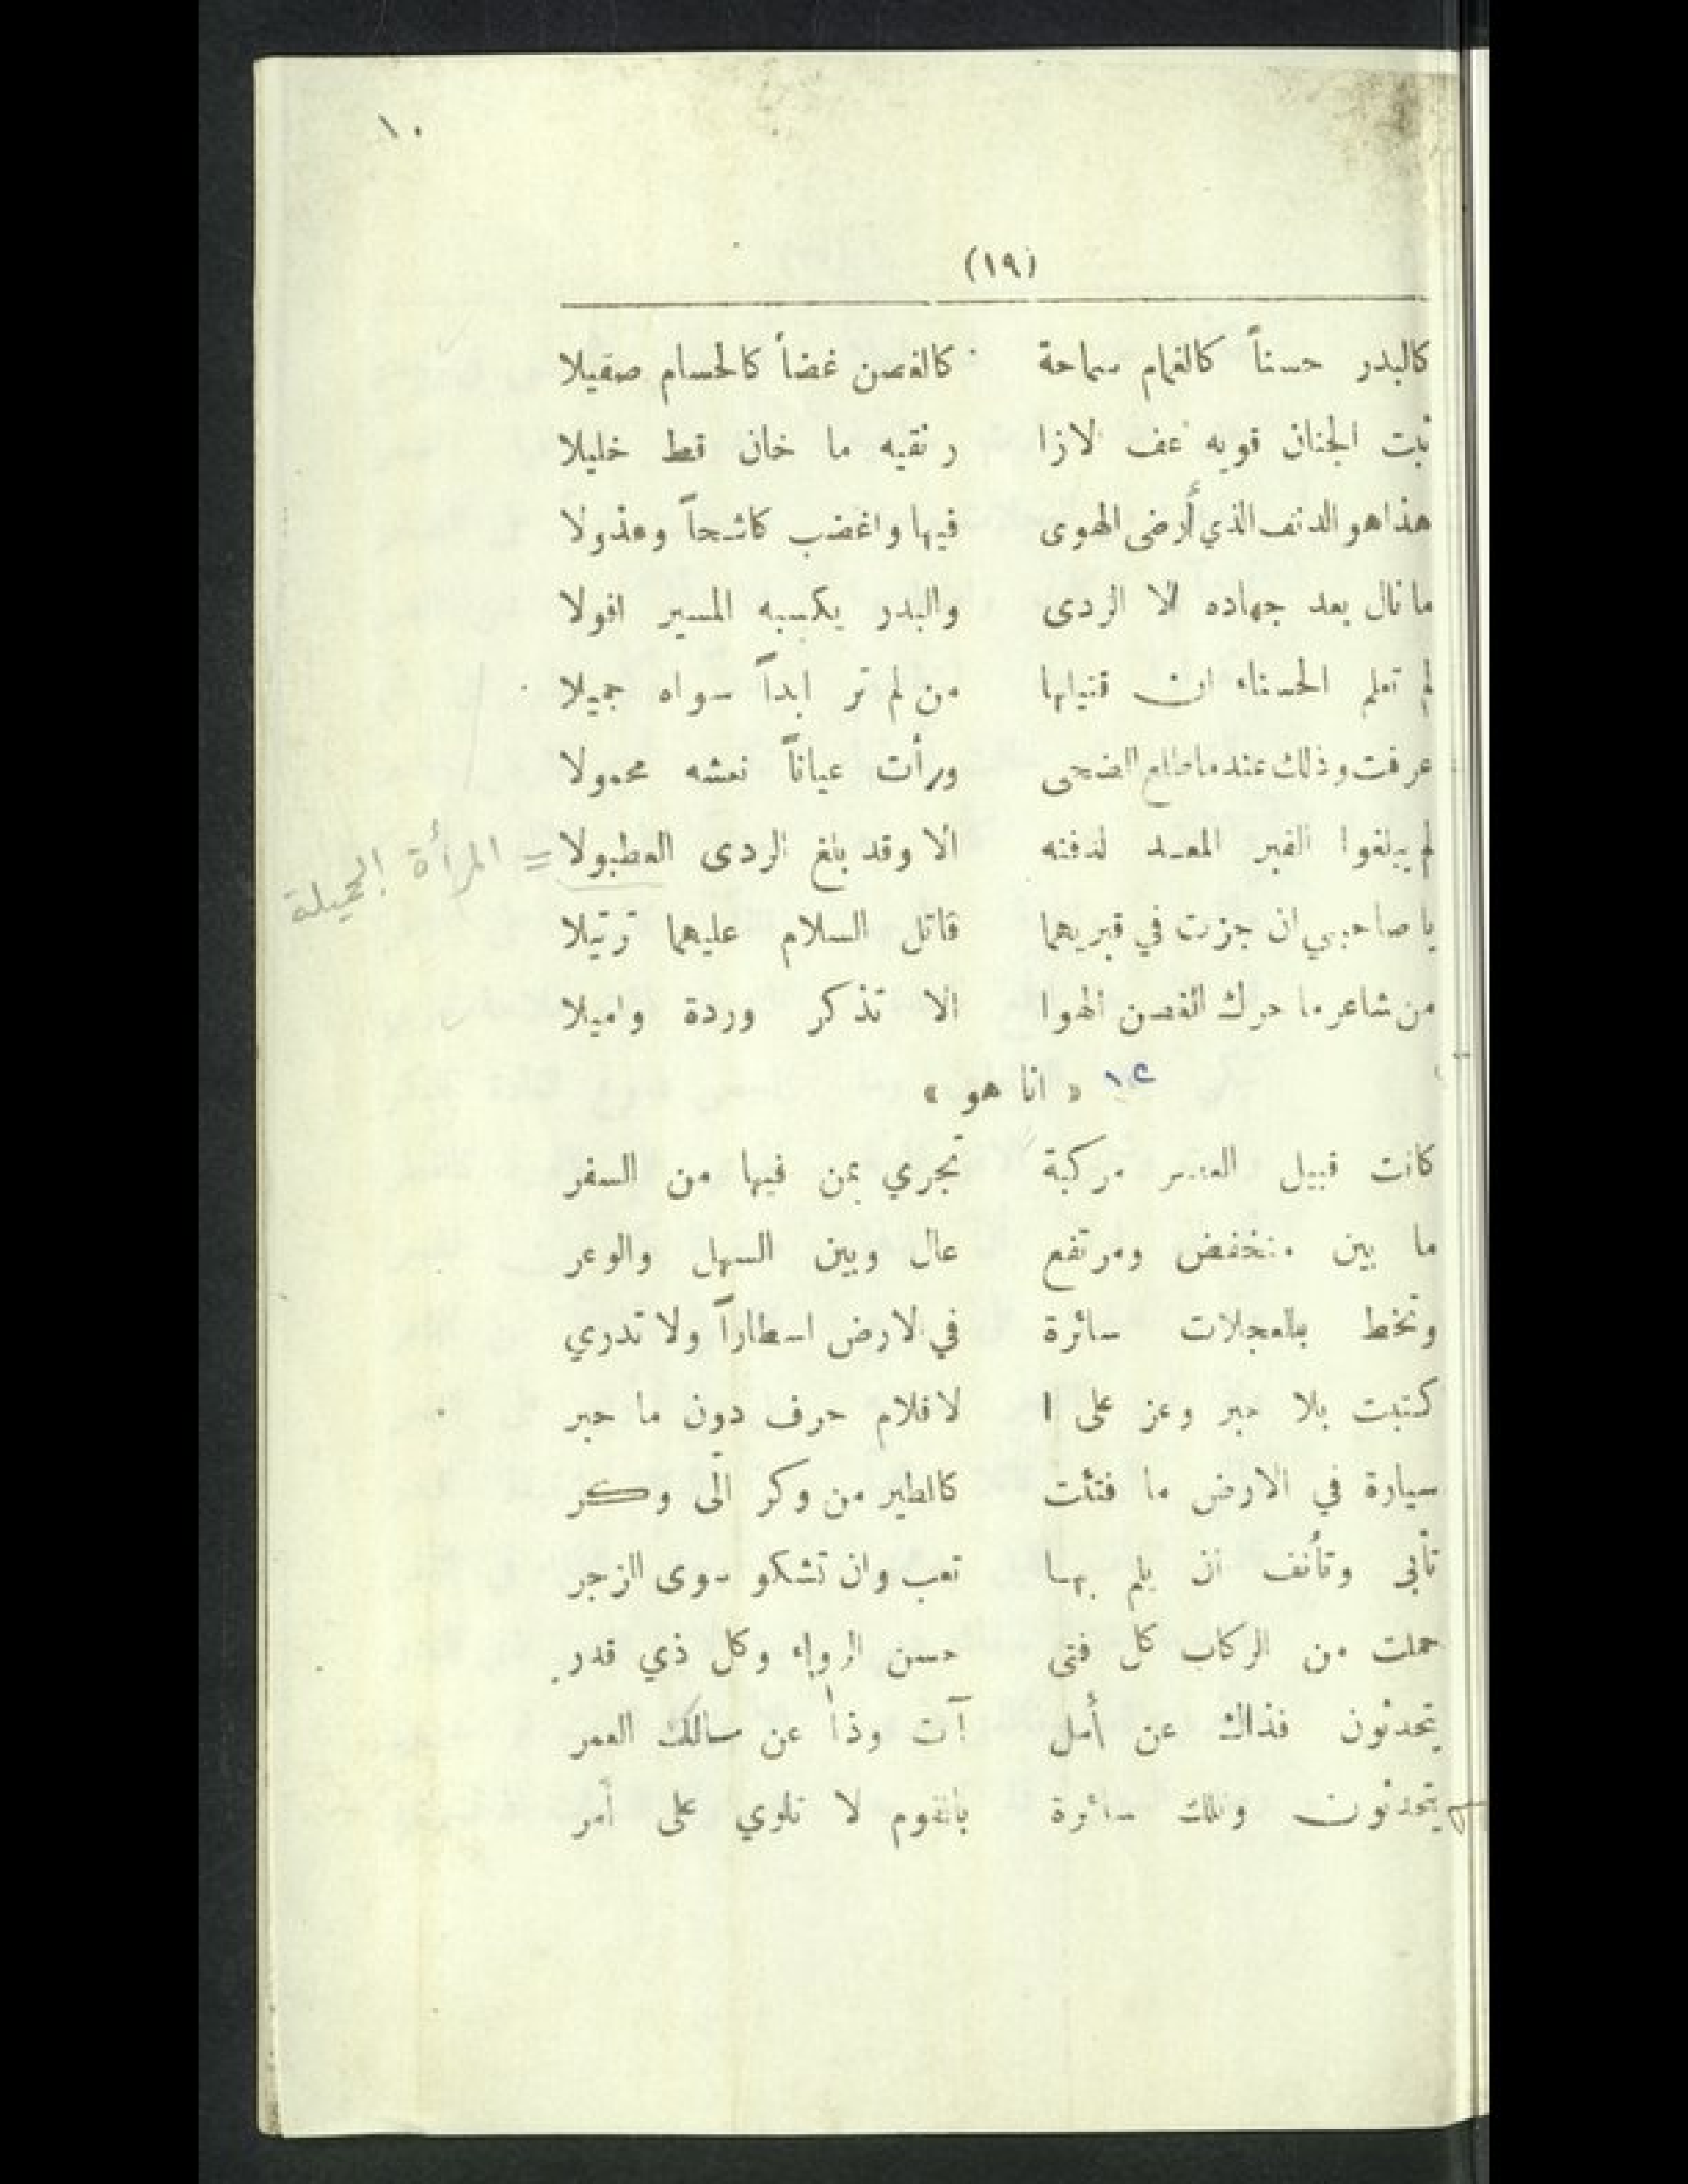 ١٠
(١٩)
كالبدر حسناً كالغمام سماحة كالغصن غضاً كالحسام صقيلا
ثبت الجنان قويه عف الازا ر نقيه ما خان قط خليلا
هذا هو الدنف الذي أرضى الهوى فيها واغضب كاشحاً وعذولا
ما نال بعد جهاده الا الردى والبدر يكسبه المسير افولا
لم تعلم الحسناء ان قتيلها من لم تر ابداً سواه جميلا
عرفت وذلك عندما طلع الضحى ورأت عياناً نعشه محمولا
لم يبلغوا القبر المعد لدفنه الا وقد بلغ الردى العطبولا = المرأة الجميلة
يا صاحبي ان جزت في قبريهما فاتل السلام عليهما ترتيلا
من شاعر ما حرك الغصن الهوا الا تذكر وردة واميلا
١٢ « انا هو »
كانت قبيل العصر مركبة تجري بمن فيها من السفر
ما بين منخفض ومرتفع عال وبين السهل والوعر
وتخط بالعجلات سائرة في الارض اسطاراً ولا تدري
كتبت بلا حبر وعز على ا لاقلام حرف دون ما حبر
سيارة في الارض ما فتئت كالطير من وكر الى وكر
تأبى وتأنف ان يلم بها تعب وان تشكو سوى الزجر
حملت من الركاب كل فتى حسن الرواء وكل ذي قدر
يتحدثون فذاك عن أمل آت وذا عن سالك العمر
يتحدثون وتلك سائرة بالقوم لا تلوي على أمر